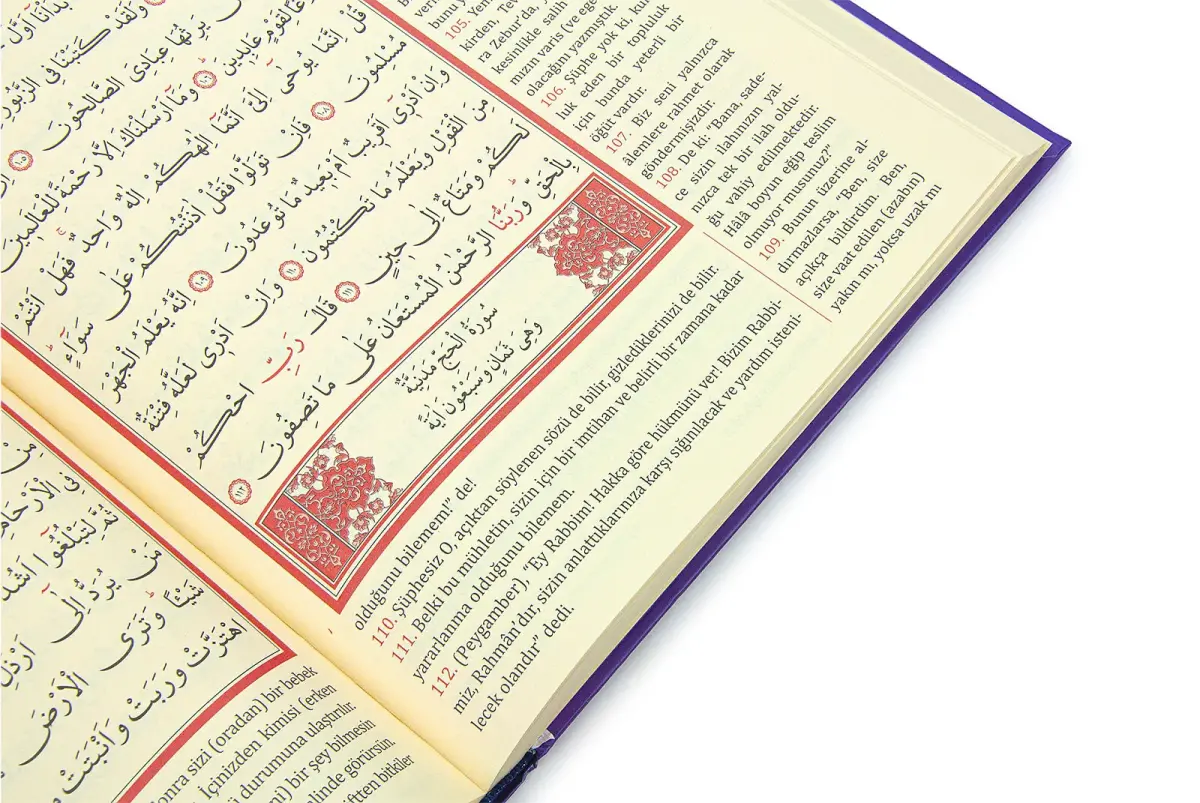 وَلَقَدْ كَتَبْنَا فِي الزَّبُورِ
يَرِثُهَا عِبَادِيَ الصَّالِحُونَ ١٠٥
لِقَوْمٍ عَابِدِينَ ١٠٦ وَمَا اَرْسَلْنَاكَ اِلَّا رَحْمَةً لِلْعَالَمِينَ
قُلْ اِنَّمَا يُوحٰى اِلَيَّ اَنَّمَا اِلٰهُكُمْ اِلٰهٌ وَاحِدٌ فَهَلْ اَنْتُمْ
مُسْلِمُونَ ١٠٨ فَاِنْ تَوَلَّوْا فَقُلْ اٰذَنْتُكُمْ عَلٰى سَوَاءٍ
وَاِنْ اَدْرِى اَقَرِيبٌ اَمْ بَعِيدٌ مَا تُوعَدُونَ ١٠٩ اِنَّهُ يَعْلَمُ الْجَهْرَ
مِنَ الْقَوْلِ وَيَعْلَمُ مَا تَكْتُمُونَ ١١٠ وَاِنْ اَدْرِى لَعَلَّهُ فِتْنَةٌ
لَكُمْ وَمَتَاعٌ اِلٰى حِينٍ ١١١ قَالَ رَبِّ احْكُمْ
بِالْحَقِّ وَرَبُّنَا الرَّحْمٰنُ الْمُسْتَعَانُ عَلٰى مَا تَصِفُونَ ١١٢
سُورَةُ الْحَجِّ مَدَنِيَّةٌ
وَهِىَ ثَمَانٍ وَسَبْعُونَ اٰيَةً
105.
kirden,
ra Zebur'da,
kesinlikle salih
mızın varis (ve ege
olacağını yazmıştık.
106. Şüphe yok ki, kul
luk eden bir topluluk
için bunda yeterli bir
öğüt vardır.
107. Biz seni yalnızca
âlemlere rahmet olarak
göndermişizdir.
108. De ki: "Bana, sade-
ce sizin ilahınızın yal-
nızca tek bir ilah oldu-
ğu vahiy edilmektedir.
Hâlâ boyun eğip teslim
olmuyor musunuz?"
109. Bunun üzerine al-
dırmazlarsa, "Ben, size
açıkça bildirdim. Ben,
size vaat edilen (azabın)
yakın mı, yoksa uzak mı
olduğunu bilemem!" de!
110. Şüphesiz O, açıktan söylenen sözü de bilir, gizlediklerinizi de bilir.
111. Belki bu mühletin, sizin için bir imtihan ve belirli bir zamana kadar
yararlanma olduğunu bilemem.
112. (Peygamber), "Ey Rabbim! Hakka göre hükmünü ver! Bizim Rabbi-
miz, Rahmân'dır, sizin anlattıklarınıza karşı sığınılacak ve yardım isteni-
lecek olandır" dedi.
فِي الْاَرْحَامِ
ثُمَّ لِتَبْلُغُوا اَشُدَّ
مَنْ يُرَدُّ اِلٰى اَرْذَلِ
شَيْئًا وَتَرَى الْاَرْضَ
اهْتَزَّتْ وَرَبَتْ وَاَنْبَتَتْ
onra sizi (oradan) bir bebek
. İçinizden kimisi (erken
durumuna ulaştırılır.
mi) bir şey bilmesin
linde görürsün.
iftten bitkiler